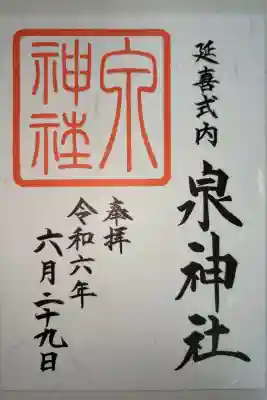 延喜式内
泉神社
奉拝
令和六年
六月二十九日
泉
神社